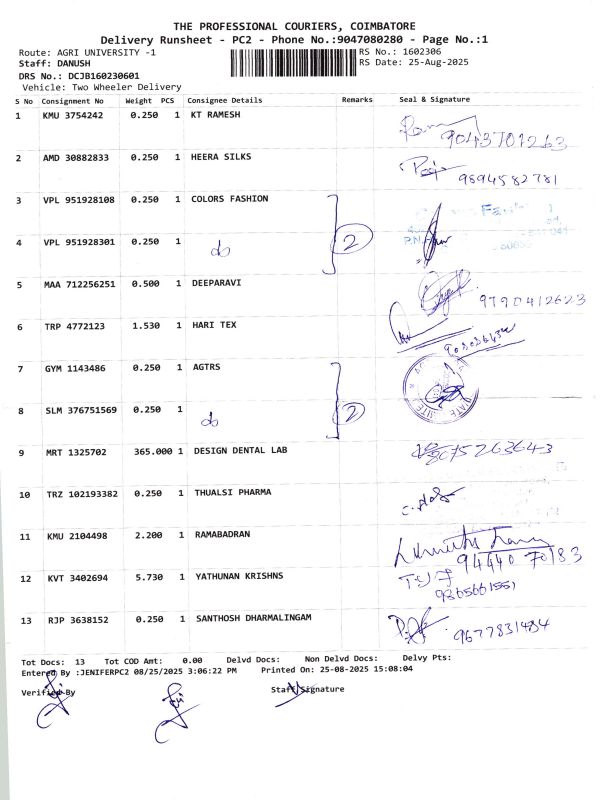 THE PROFESSIONAL COURIERS, COIMBATORE
Delivery Runsheet - PC2 - Phone No.:9047080280 - Page No.:1
Route: AGRI UNIVERSITY -1 RS No.: 1602306
Staff: DANUSH RS Date: 25-Aug-2025
DRS No.: DCJB160230601
Vehicle: Two Wheeler Delivery
S No Consignment No Weight PCS Consignee Details Remarks Seal & Signature
1 KMU 3754242 0.250 1 KT RAMESH
9043701263
2 AMD 30882833 0.250 1 HEERA SILKS
9894582781
3 VPL 951928108 0.250 1 COLORS FASHION
4 VPL 951928301 0.250 1 do 2
5 MAA 712256251 0.500 1 DEEPARAVI
9790412623
6 TRP 4772123 1.530 1 HARI TEX
7 GYM 1143486 0.250 1 AGTRS
8 SLM 376751569 0.250 1 do 2
9 MRT 1325702 365.000 1 DESIGN DENTAL LAB
10 TRZ 102193382 0.250 1 THUALSI PHARMA
11 KMU 2104498 2.200 1 RAMABADRAN
94440 70183
12 KVT 3402694 5.730 1 YATHUNAN KRISHNS
13 RJP 3638152 0.250 1 SANTHOSH DHARMALINGAM
9677831484
Tot Docs: 13 Tot COD Amt: 0.00 Delvd Docs: Non Delvd Docs: Delvy Pts:
Entered By :JENIFERPC2 08/25/2025 3:06:22 PM Printed On: 25-08-2025 15:08:04
Verified By Staff Signature